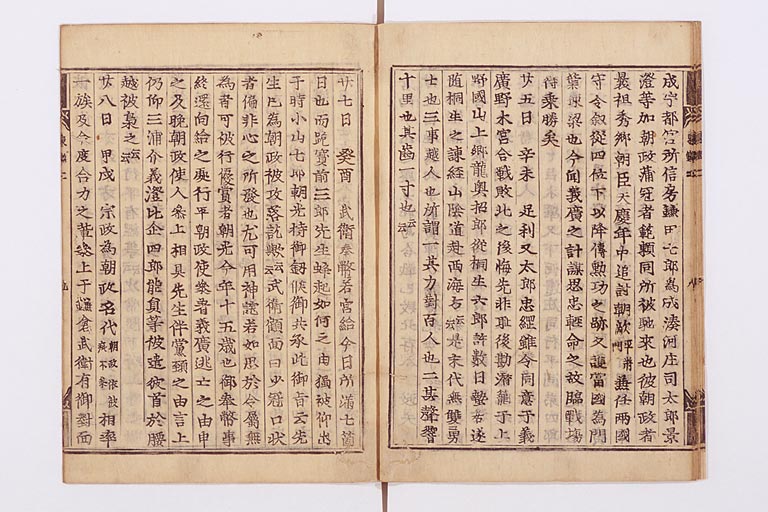 成宇都宮所信房鎌田七郎為成湊河庄司太郎景
澄等加朝政蒲冠者範頼同所被馳来也彼朝政者
曩祖秀郷朝臣天慶年中追討朝敵平将門兼任両國
守令叙従四位下以降傳勲功之跡久護當國為門
葉棟梁也今聞義廣之計謀思忠軽命之故臨戦場
得乗勝矣
廿五日 辛未 足利又太郎忠綱雖令同意于義
廣野木宮合戦敗北之後悔先非耻後勘潜籠于上
野國山上郷龍奥招郎従桐生六郎許數日蟄居遂
随桐生之諫経山陰道赴西海方云々是末代無雙勇
士也三事越人也所謂一其力對百人也二其聲響
十里也其齒一寸也云々
廿七日 癸酉 武衛奉幣若宮給今日所満七ヶ
日也而跪寳前三郎先生蜂起如何之由猶被仰出
于時小山七郎朝光持御釼候御共承此御旨云先
生已為朝政被攻落訖歟云々武衛顧面曰少冠口状
者偏非心之所發也尤可用神詫若如思於令属無
為者可被行優賞者朝光今年十五歳也御奉幣事
終還向給之處行平朝政使参著義廣逃亡之由申
之及晩朝政使人参上相具先生伴黨頸之由言上
仍仰三浦介義澄比企四郎能員等被遣彼首於腰
越被梟之云々
廿八日 甲戌 宗政為朝政名代朝政依被疵不参相率
一族及今度合力之輩参上于鎌倉武衛有御對面